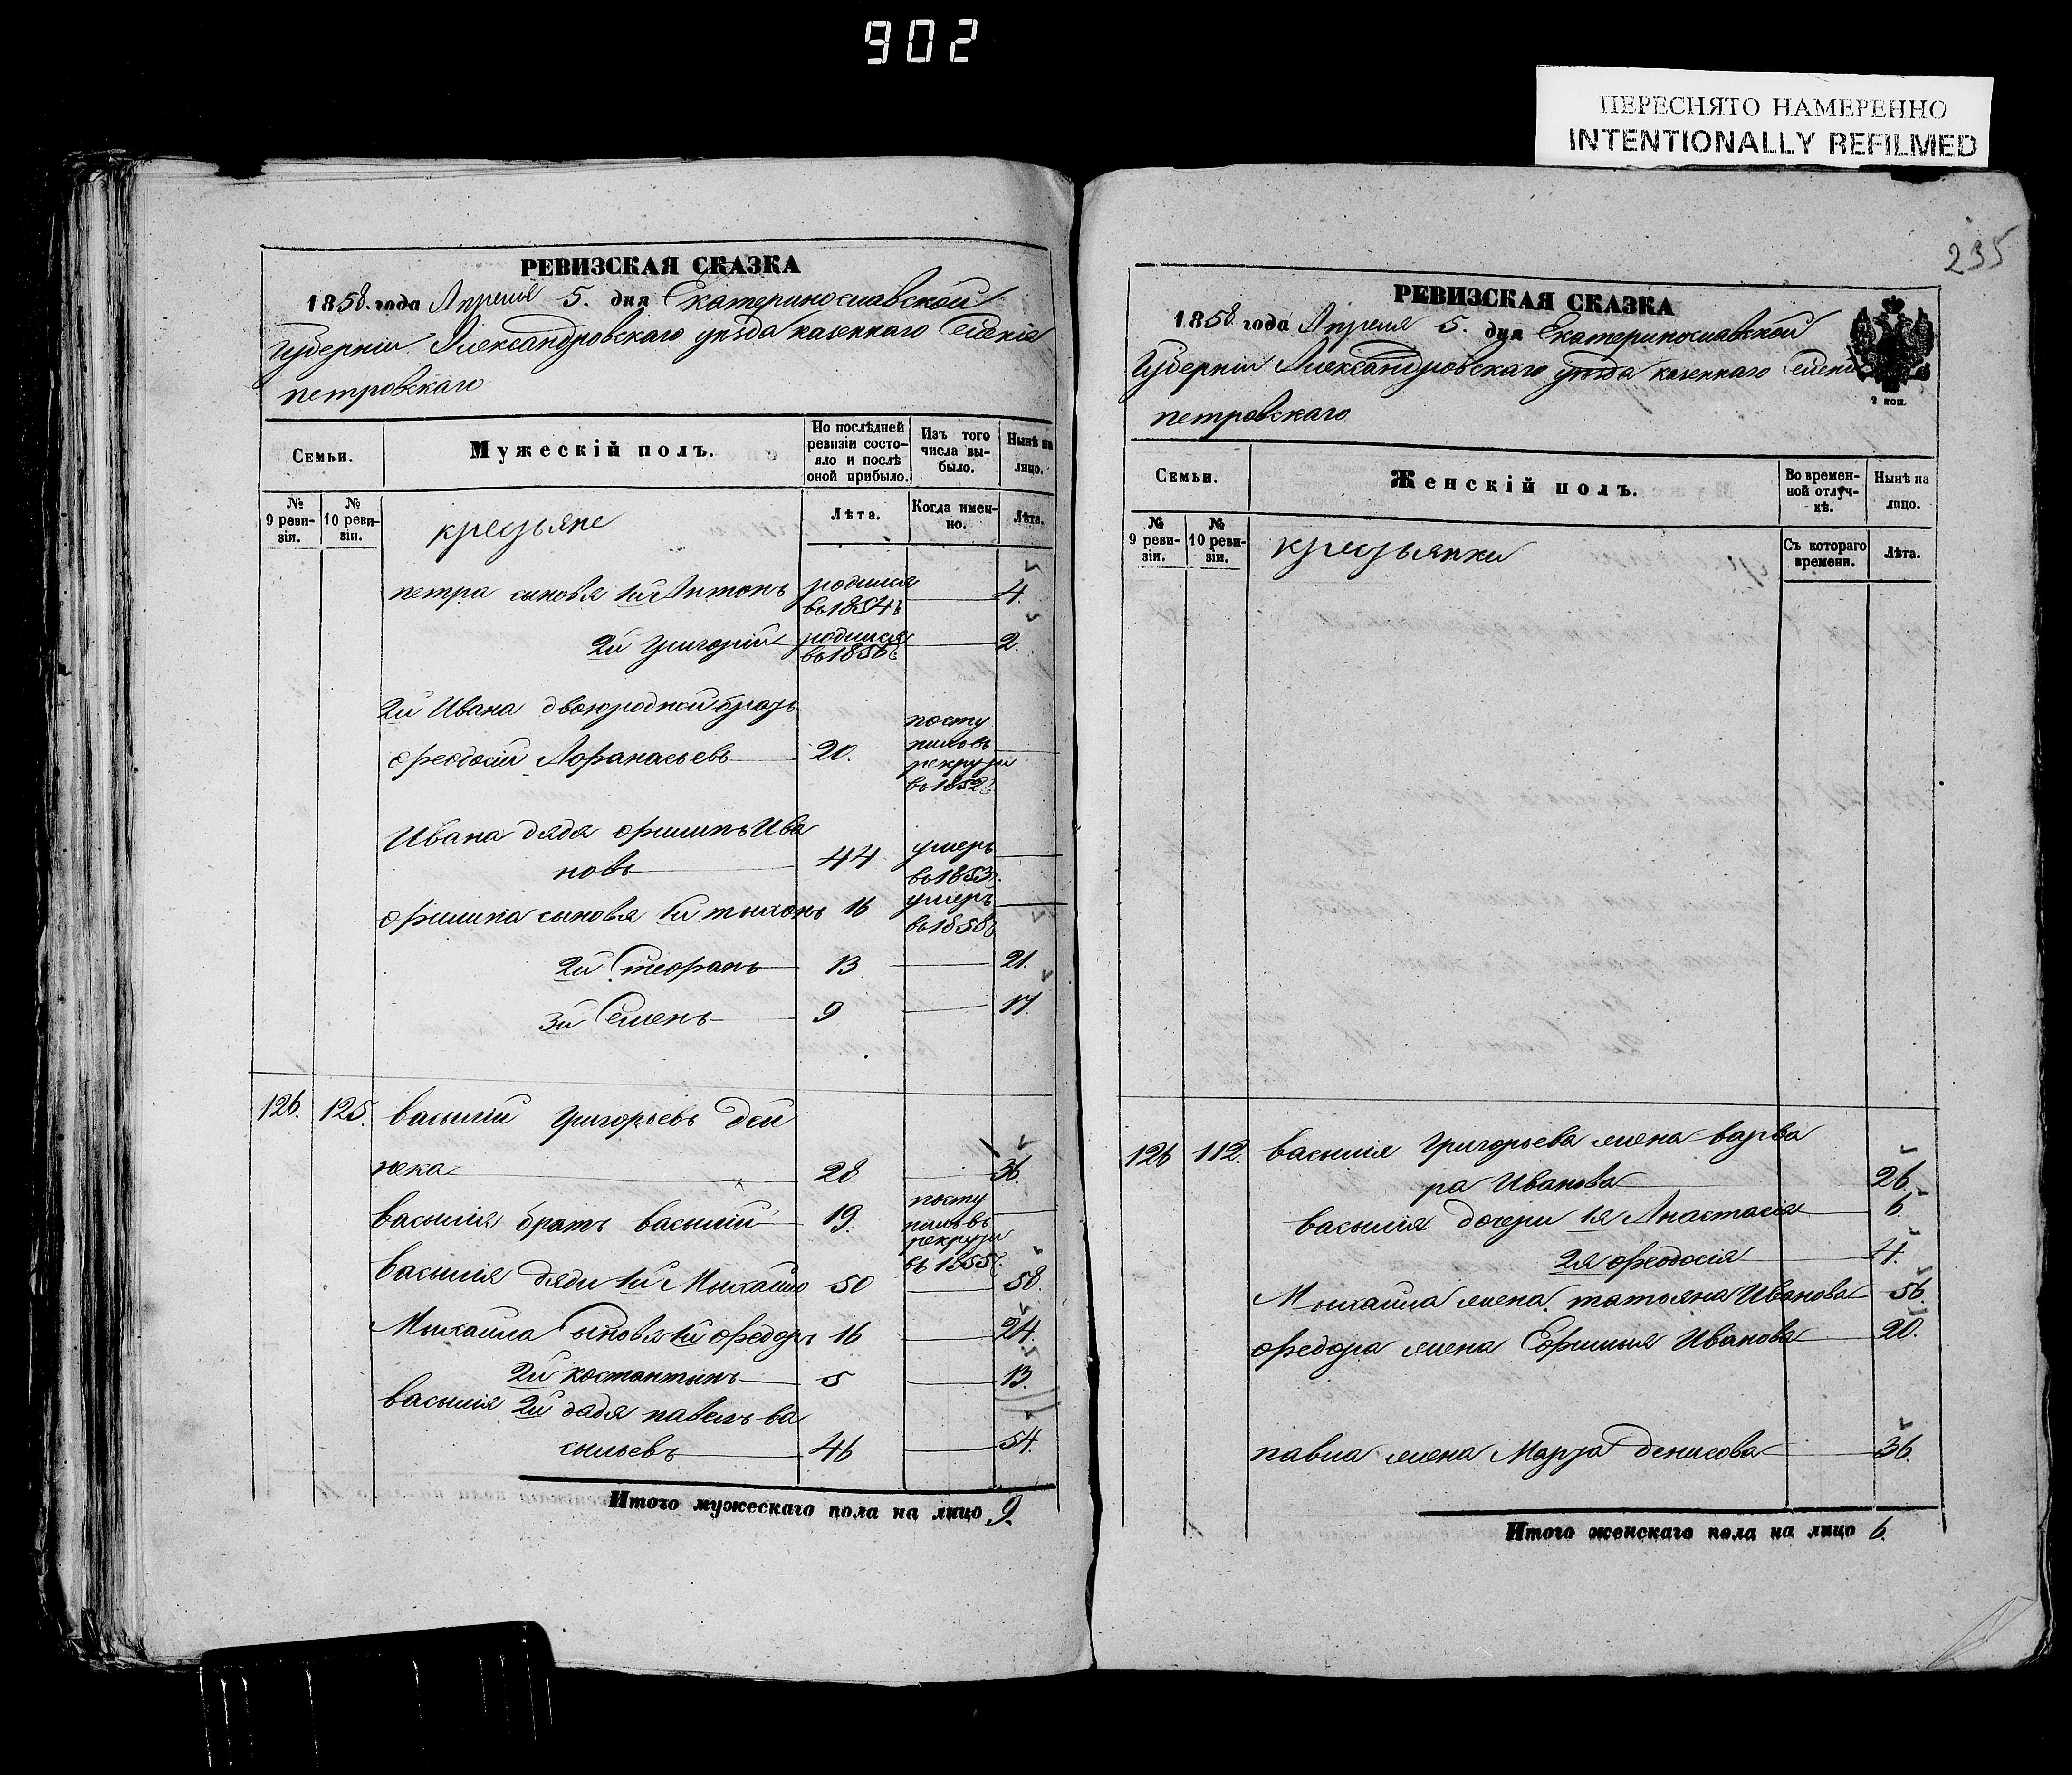 902
ПЕРЕСНЯТО НАМЕРЕННО
INTENTIONALLY REFILMED
РЕВИЗСКАЯ СКАЗКА
1858. года Апреля 5. дня Екатеринославской
Губерніи Александровскаго уезда казеннаго Селенія
петровскаго
Семьи.
Мужескій полъ.
По послѣдней ревизіи состояло и послѣ оной прибыло.
Изъ того числа выбыло.
Нынѣ на лицо.
№ 9 ревизіи.
№ 10 ревизіи.
крестьяне
Лѣта.
Когда именно.
Лѣта.
петра сыновя 1й Антонъ родился в 1854г 4.
2й Григорій родился в 1856г 2.
2й Ивана двоюродной братъ
Феодосій Афанасьевъ 20. посту пилъ въ рекруты в 1852г
Ивана дядя Филипъ Ива
новъ 44 умеръ в 1853г.
Филипа сыновя 1й тыхонъ 16 умеръ в 1858г
2й Стефанъ 13 21.
3й Семенъ 9 17.
126. 125. василій Григорьевъ Дей
нека 28 36.
василія братъ василій 19. посту пилъ въ рекруты въ 1855г.
василія дяди 1й Мыхайло 50 58.
Мыхайла Сыновя 1й Федоръ 16 24.
2й костантынъ 5 13.
василія 2й дядя павелъ ва
сильевъ 46 54.
Итого мужескаго пола на лицо 9.
235
РЕВИЗСКАЯ СКАЗКА
1858. года Апреля 5. дня Екатеринославской
Губерніи Александровскаго уезда казеннаго Селенія
петровскаго
2 коп.
Семьи.
Женскій полъ.
Во временной отлучкѣ.
Нынѣ на лицо.
№ 9 ревизіи.
№ 10 ревизіи.
крестьянки
Съ котораго времени.
Лѣта.
126 112. василія Григорьева жена варва
ра Иванова 26.
василія дочери 1я Анастасія 6.
2я Феодосія 4.
Мыхайла жена татьяна Иванова 56.
Федора жена Ефимія Иванова 20.
павла жена Марфа денисова 36.
Итого женскаго пола на лицо 6.